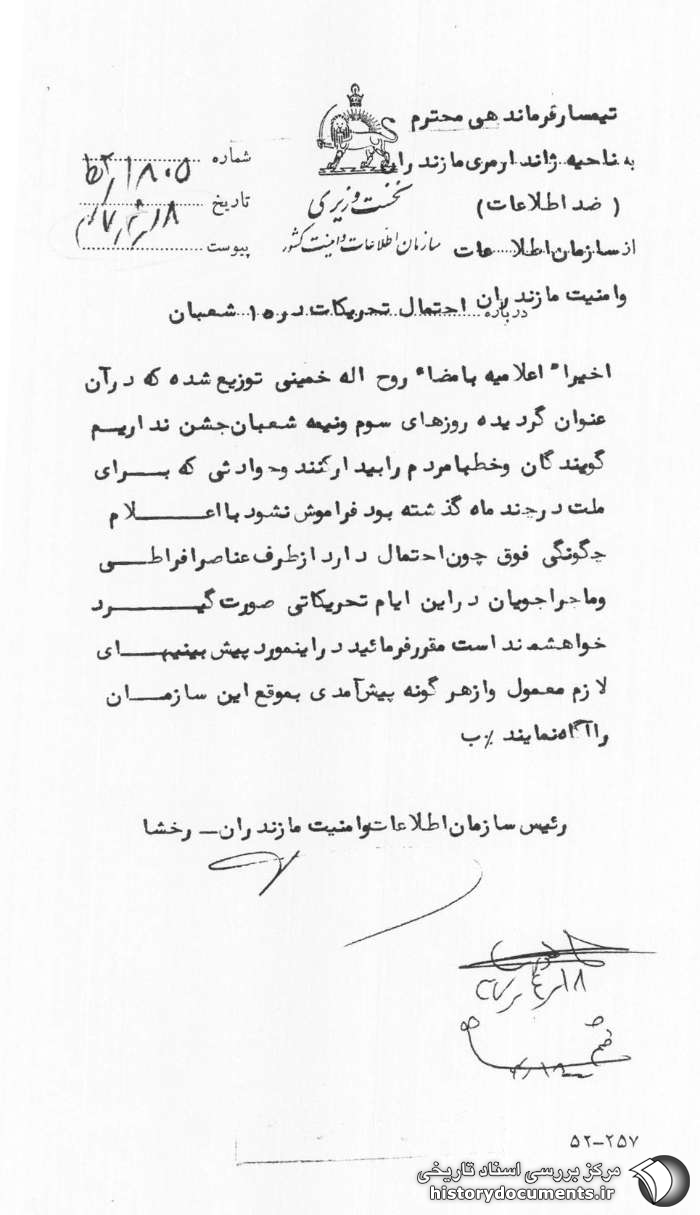 تیمسار فرماندهی محترم
به ناحیه ژاندارمری مازندران
(ضد اطلاعات)
از سازمان اطلاعات
وامنیت مازندران
نخست وزیری
سازمان اطلاعات و امنیت کشور
شماره
تاریخ
پیوست
درباره احتمال تحریکات در ۱۵ شعبان
اخیرا" اعلامیه بامضاء روح اله خمینی توزیع شده که درآن
عنوان گردیده روزهای سوم ونیمه شعبان جشن نداریم
گویندگان وخطبا مردم رابیدارکنند وحوادثی که برای
ملت درچند ماه گذشته بود فراموش نشود بااعلام
چگونگی فوق چون احتمال دارد ازطرف عناصر افراطی
وماجراجویان دراین ایام تحریکاتی صورت گیرد
خواهشمند است مقررفرمائید دراینمورد پیش بینیهای
لازم معمول وازهر گونه پیش‌آمدی بموقع این سازمان
راآگاه نمایند ٪ب
رئیس سازمان اطلاعات وامنیت مازندران ـ رخشا
۵۲-۲۵۷
مرکز بررسی اسناد تاریخی
historydocuments.ir